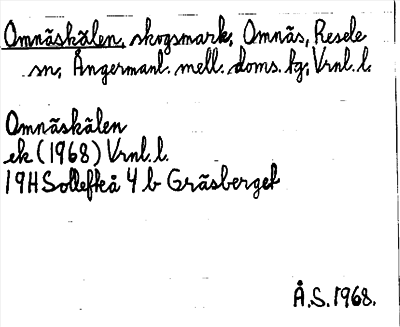 Omnäskälen, skogsmark, Omnäs, Resele
sn, Ångermanl. mell. doms. hg, Vrnl. l.
Omnäskälen
ek (1968) Vrnl. l.
19H Sollefteå 4 b Gräsberget
Å.S. 1968.